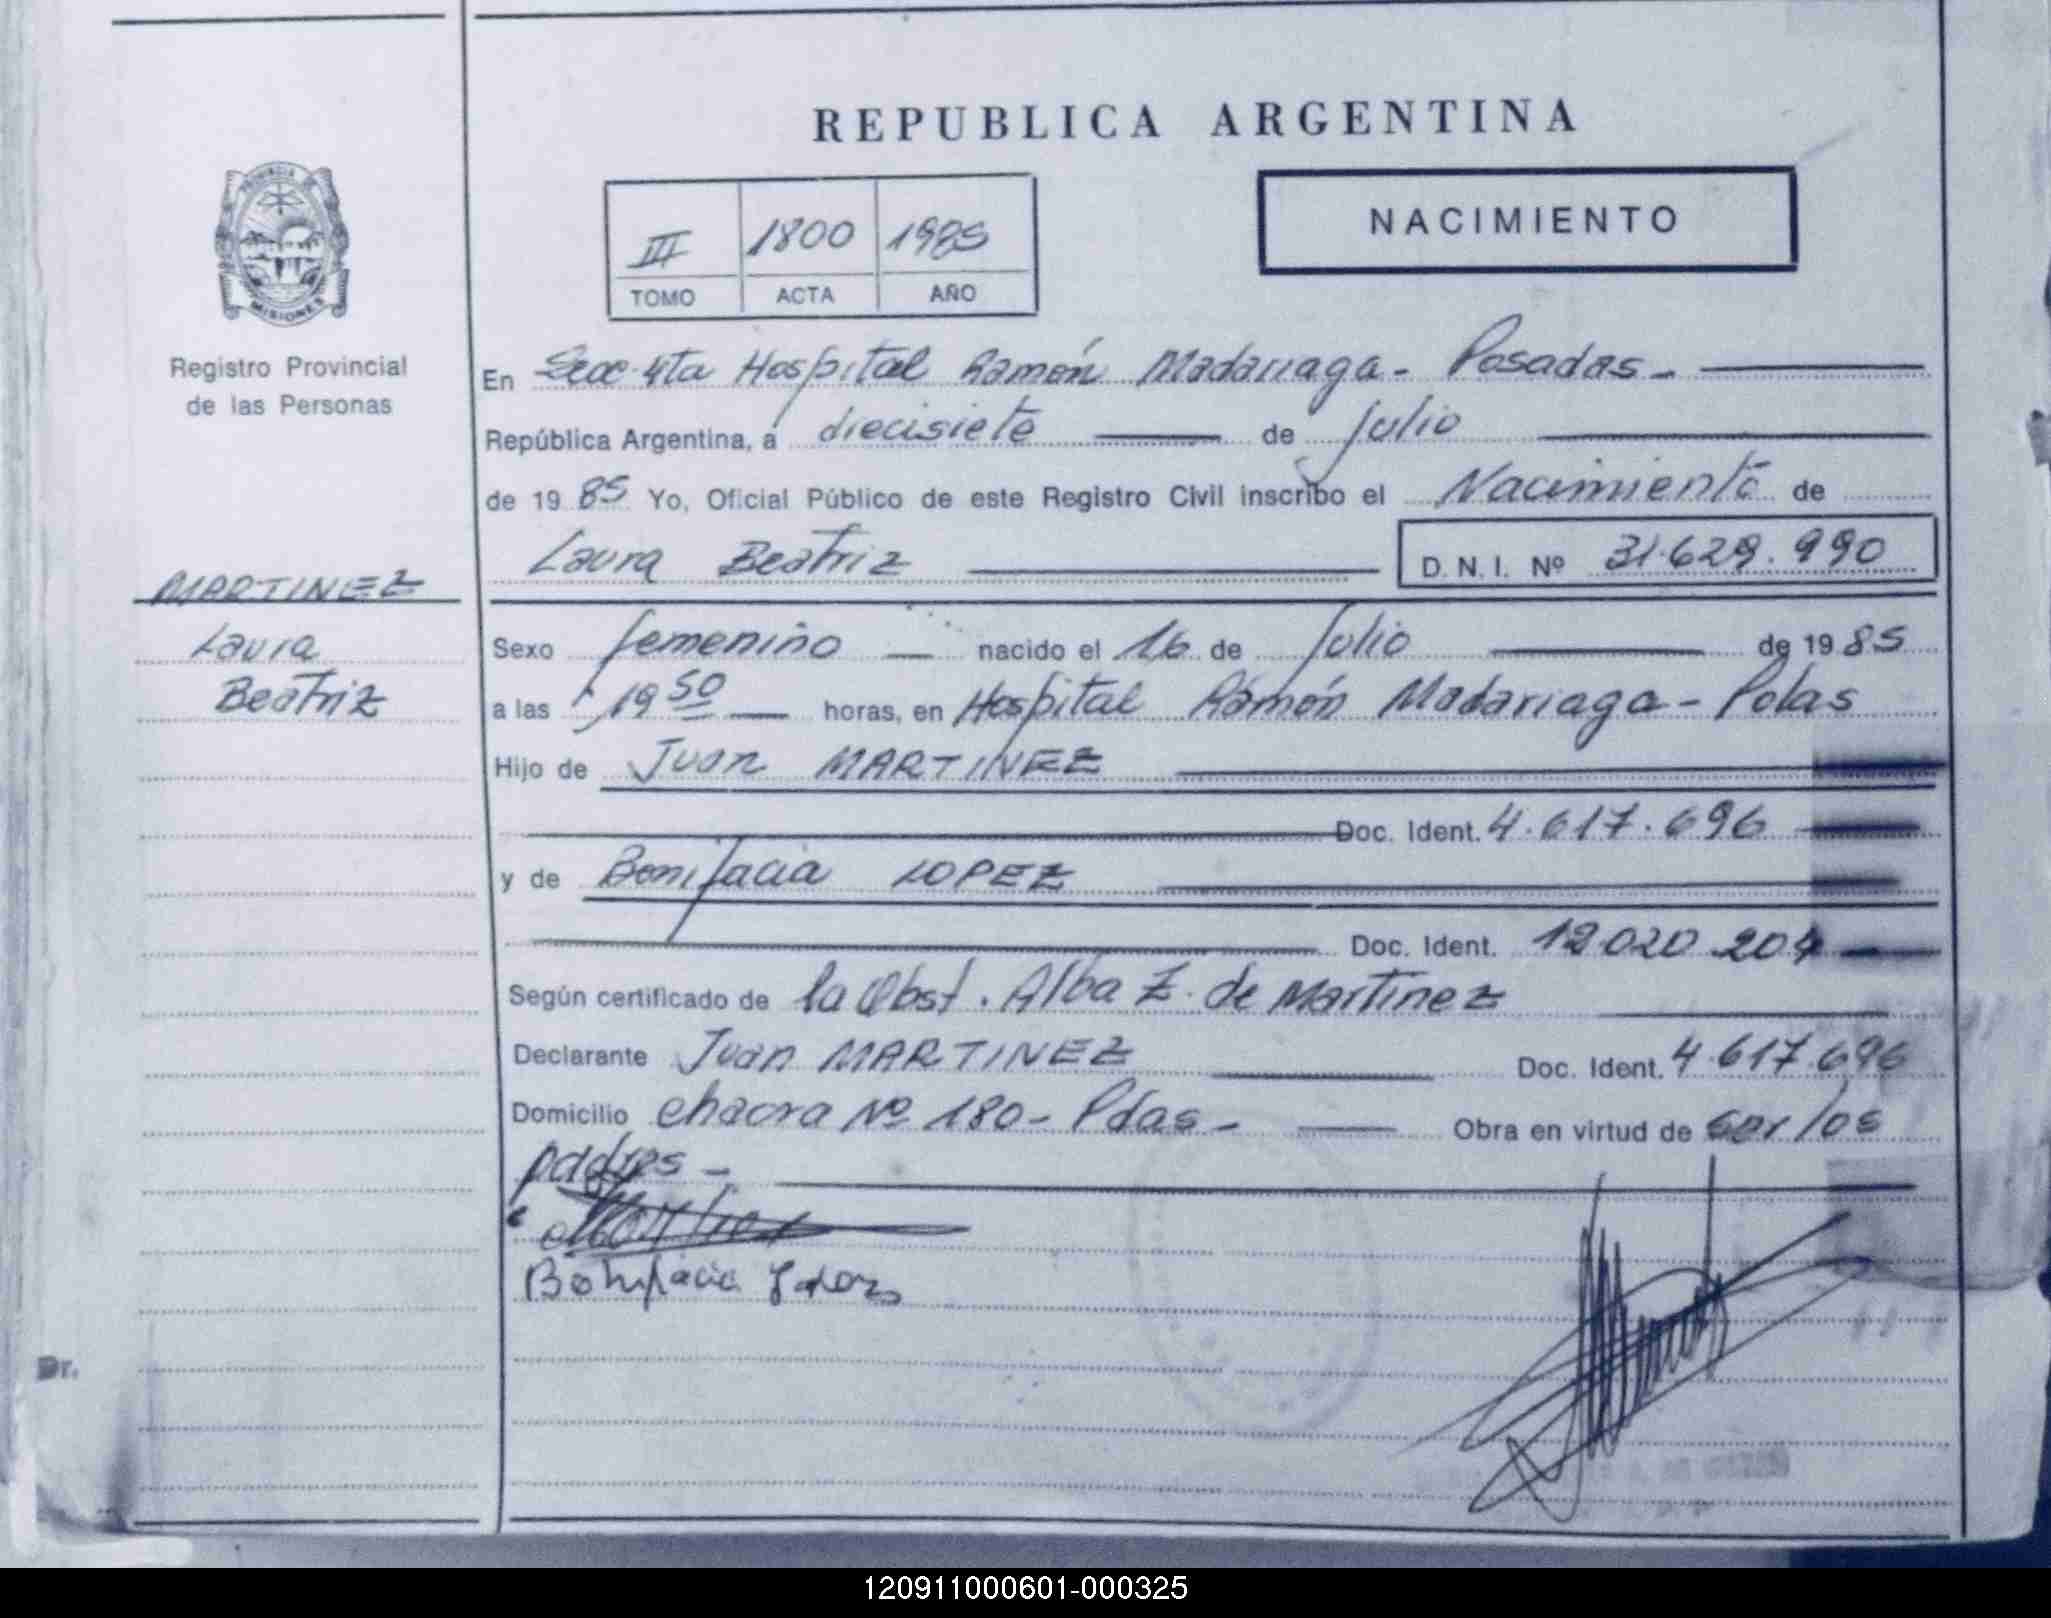 REPUBLICA ARGENTINA
PROVINCIA DE
MISIONES
Registro Provincial
de las Personas
III 1800 1985
TOMO ACTA AÑO
NACIMIENTO
En Secc. 4ta Hospital Ramón Madariaga - Posadas -
República Argentina, a diecisiete de Julio
de 19 85 Yo, Oficial Público de este Registro Civil inscribo el Nacimiento de
Laura Beatriz D. N. I. Nº 31.629.990
MARTINEZ
Laura
Beatriz
Sexo femenino nacido el 16 de Julio de 19 85
a las 19 50 horas, en Hospital Ramón Madariaga - Pdas
Hijo de Juan MARTINEZ
Doc. Ident. 4.617.696
y de Bonifacia LOPEZ
Doc. Ident. 12.020.204
Según certificado de la Obst. Alba Z. de Martinez
Declarante Juan MARTINEZ Doc. Ident. 4.617.696
Domicilio chacra Nº 180 - Pdas - Obra en virtud de ser los
padres -
Bonifacia
Dr.
120911000601-000325